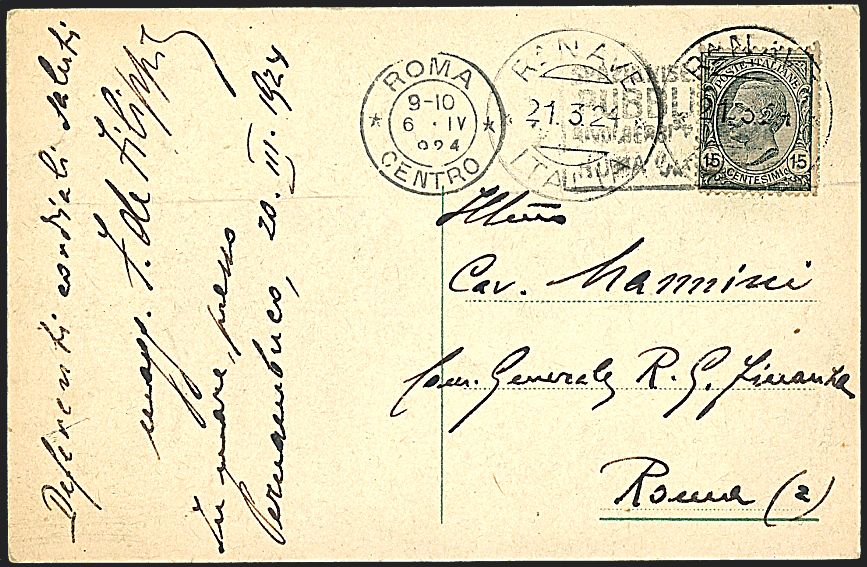 Deferenti cordiali saluti
magg. F. de Filippis
In mare, presso
Pernambuco, 20. III. 1924
ROMA
9-10
6 . IV
924
CENTRO
R. NAVE
21.3.24
ITALIA
R. NAVE
21.3.24
POSTE ITALIANE
15 15
CENTESIMI
Illmo
Cav. Mannini
Com. Generale R. G. Finanza
Roma (2)